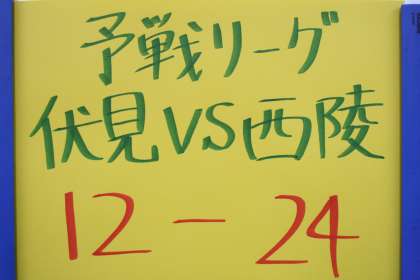 予戦リーグ
伏見VS西陵
12-24